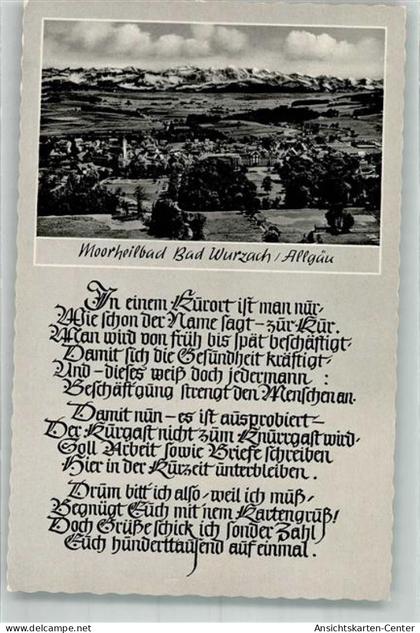 Moorheilbad Bad Wurzach/Allgäu
In einem Kurort ist man nur
Wie schon der Name sagt – zur Kur.
Man wird von früh bis spät beschäftigt
Damit sich die Gesundheit kräftigt
Und – dieses weiß doch jedermann :
Beschäftgung strengt den Menschen an.
Damit nun – es ist ausprobiert –
Der Kurgast nicht zum Knurrgast wird
Soll Arbeit sowie Briefe schreiben
Hier in der Kurzeit unterbleiben.
Drum bitt ich also, weil ich muß,
Begnügt Euch mit nem Kartengruß!
Doch Grüße schick ich sonder Zahl
Euch hunderttausend auf einmal.
www.ansichtskarten-center.de / Ansichtskarten-Center